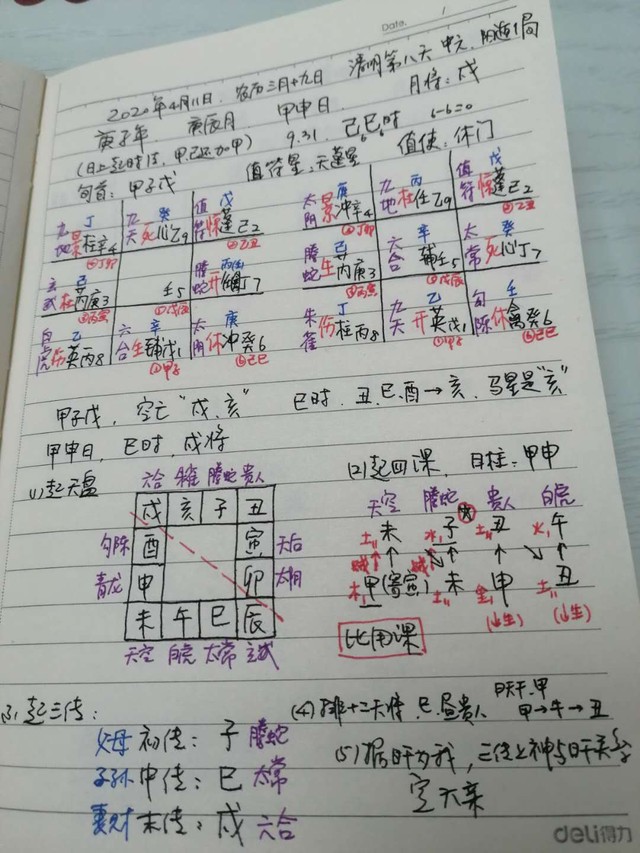 Date.
2020年4月11日. 农历三月十九日 清明第八天 中元, 阴遁1局
庚子年 庚辰月 甲申日 9.31. 己巳时 月将: 戌
(日上起时法, 甲己还加甲) 6-6=0
旬首: 甲子戊 值符星: 天蓬星 值使: 休门
九地 丁 景柱辛4 ④丁卯
九天 癸 死心乙9
值符 戊 惊蓬己2 ②乙丑
太阴 庚 景冲辛4 ④丁卯
九地 丙 杜任乙9
值符 戊 惊蓬己2 ②乙丑
玄武 己 杜芮庚3 ③丙寅
壬5 ⑤戊辰
螣蛇 丙 开任丁7
螣蛇 己 生芮庚3 ③丙寅
六合 辛 辅壬5 ⑤戊辰
太常 癸 死心丁7
白虎 乙 伤英丙8
六合 辛 生辅戊1 ①甲子
太阴 庚 休冲癸6 ⑥己巳
朱雀 丁 伤柱丙8
九天 乙 开英戊1 ①甲子
勾陈 壬 休禽癸6 ⑥己巳
甲子戊, 空亡“戌、亥” 巳时. 丑、巳、酉→亥, 马星是“亥”
甲申日, 巳时, 戌将
(1) 起天盘
六合 朱雀 螣蛇 贵人
戌 亥 子 丑
勾陈 酉 寅 天后
青龙 申 卯 太阴
未 午 巳 辰
天空 白虎 太常 玄武
(2) 起四课, 日柱: 甲申
天空 螣蛇 贵人 白虎
土未 水子 土丑 火午
贼 贼
木甲(寄寅) 土未 金申 土丑
(↓生) (↓生)
比用课
(3) 起三传:
父母 初传: 子 螣蛇
子孙 中传: 巳 太常
妻财 末传: 戌 六合
(4) 排十二天将, 巳, 昼贵人 日天干: 甲
甲→午→丑
(5) 据日干为我, 三传上神与日干关系
定六亲
deli得力